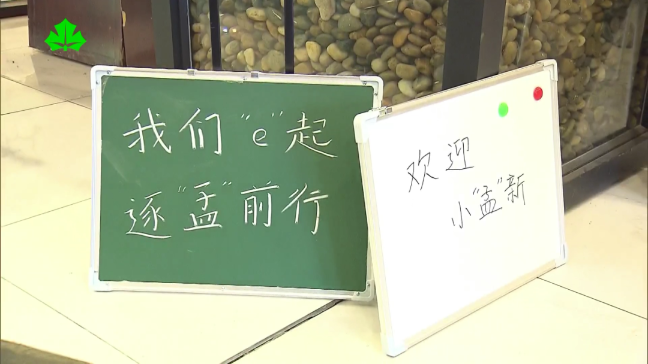 我们“e”起
逐“孟”前行
欢迎
小“孟”新